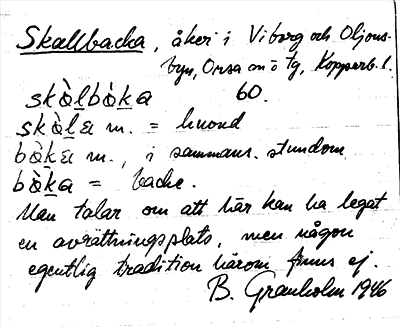 Skallbacka, åker i Viborg och Oljons-
byn, Orsa sn ö tg, Kopparb. l.
skàlbàka 60.
skàlɛ m. = huvud
bàkɛ m., i sammans. stundom
bàka = backe.
Man talar om att här kan ha legat
en avrättningsplats, men någon
egentlig tradition härom finns ej.
B. Granholm 1946